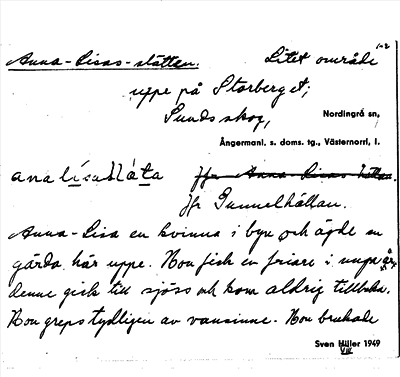 1-2
Anna-Lisas-slåtten. Litet område
uppe på Storberget;
Sunds skog,
Nordingrå sn,
Ångermanl. s. doms. tg., Västernorrl, l.
Jfr Anna-Lisas
Jfr Gunnelhällan.
Anna-Lisa en kvinna i byn och ägde en
gärda här uppe. Hon fick en friare i unga år,
denne gick till sjöss och kom aldrig tillbaka.
Hon greps tydligen av vansinne. Hon brukade
Sven Hiller 1949
VIII